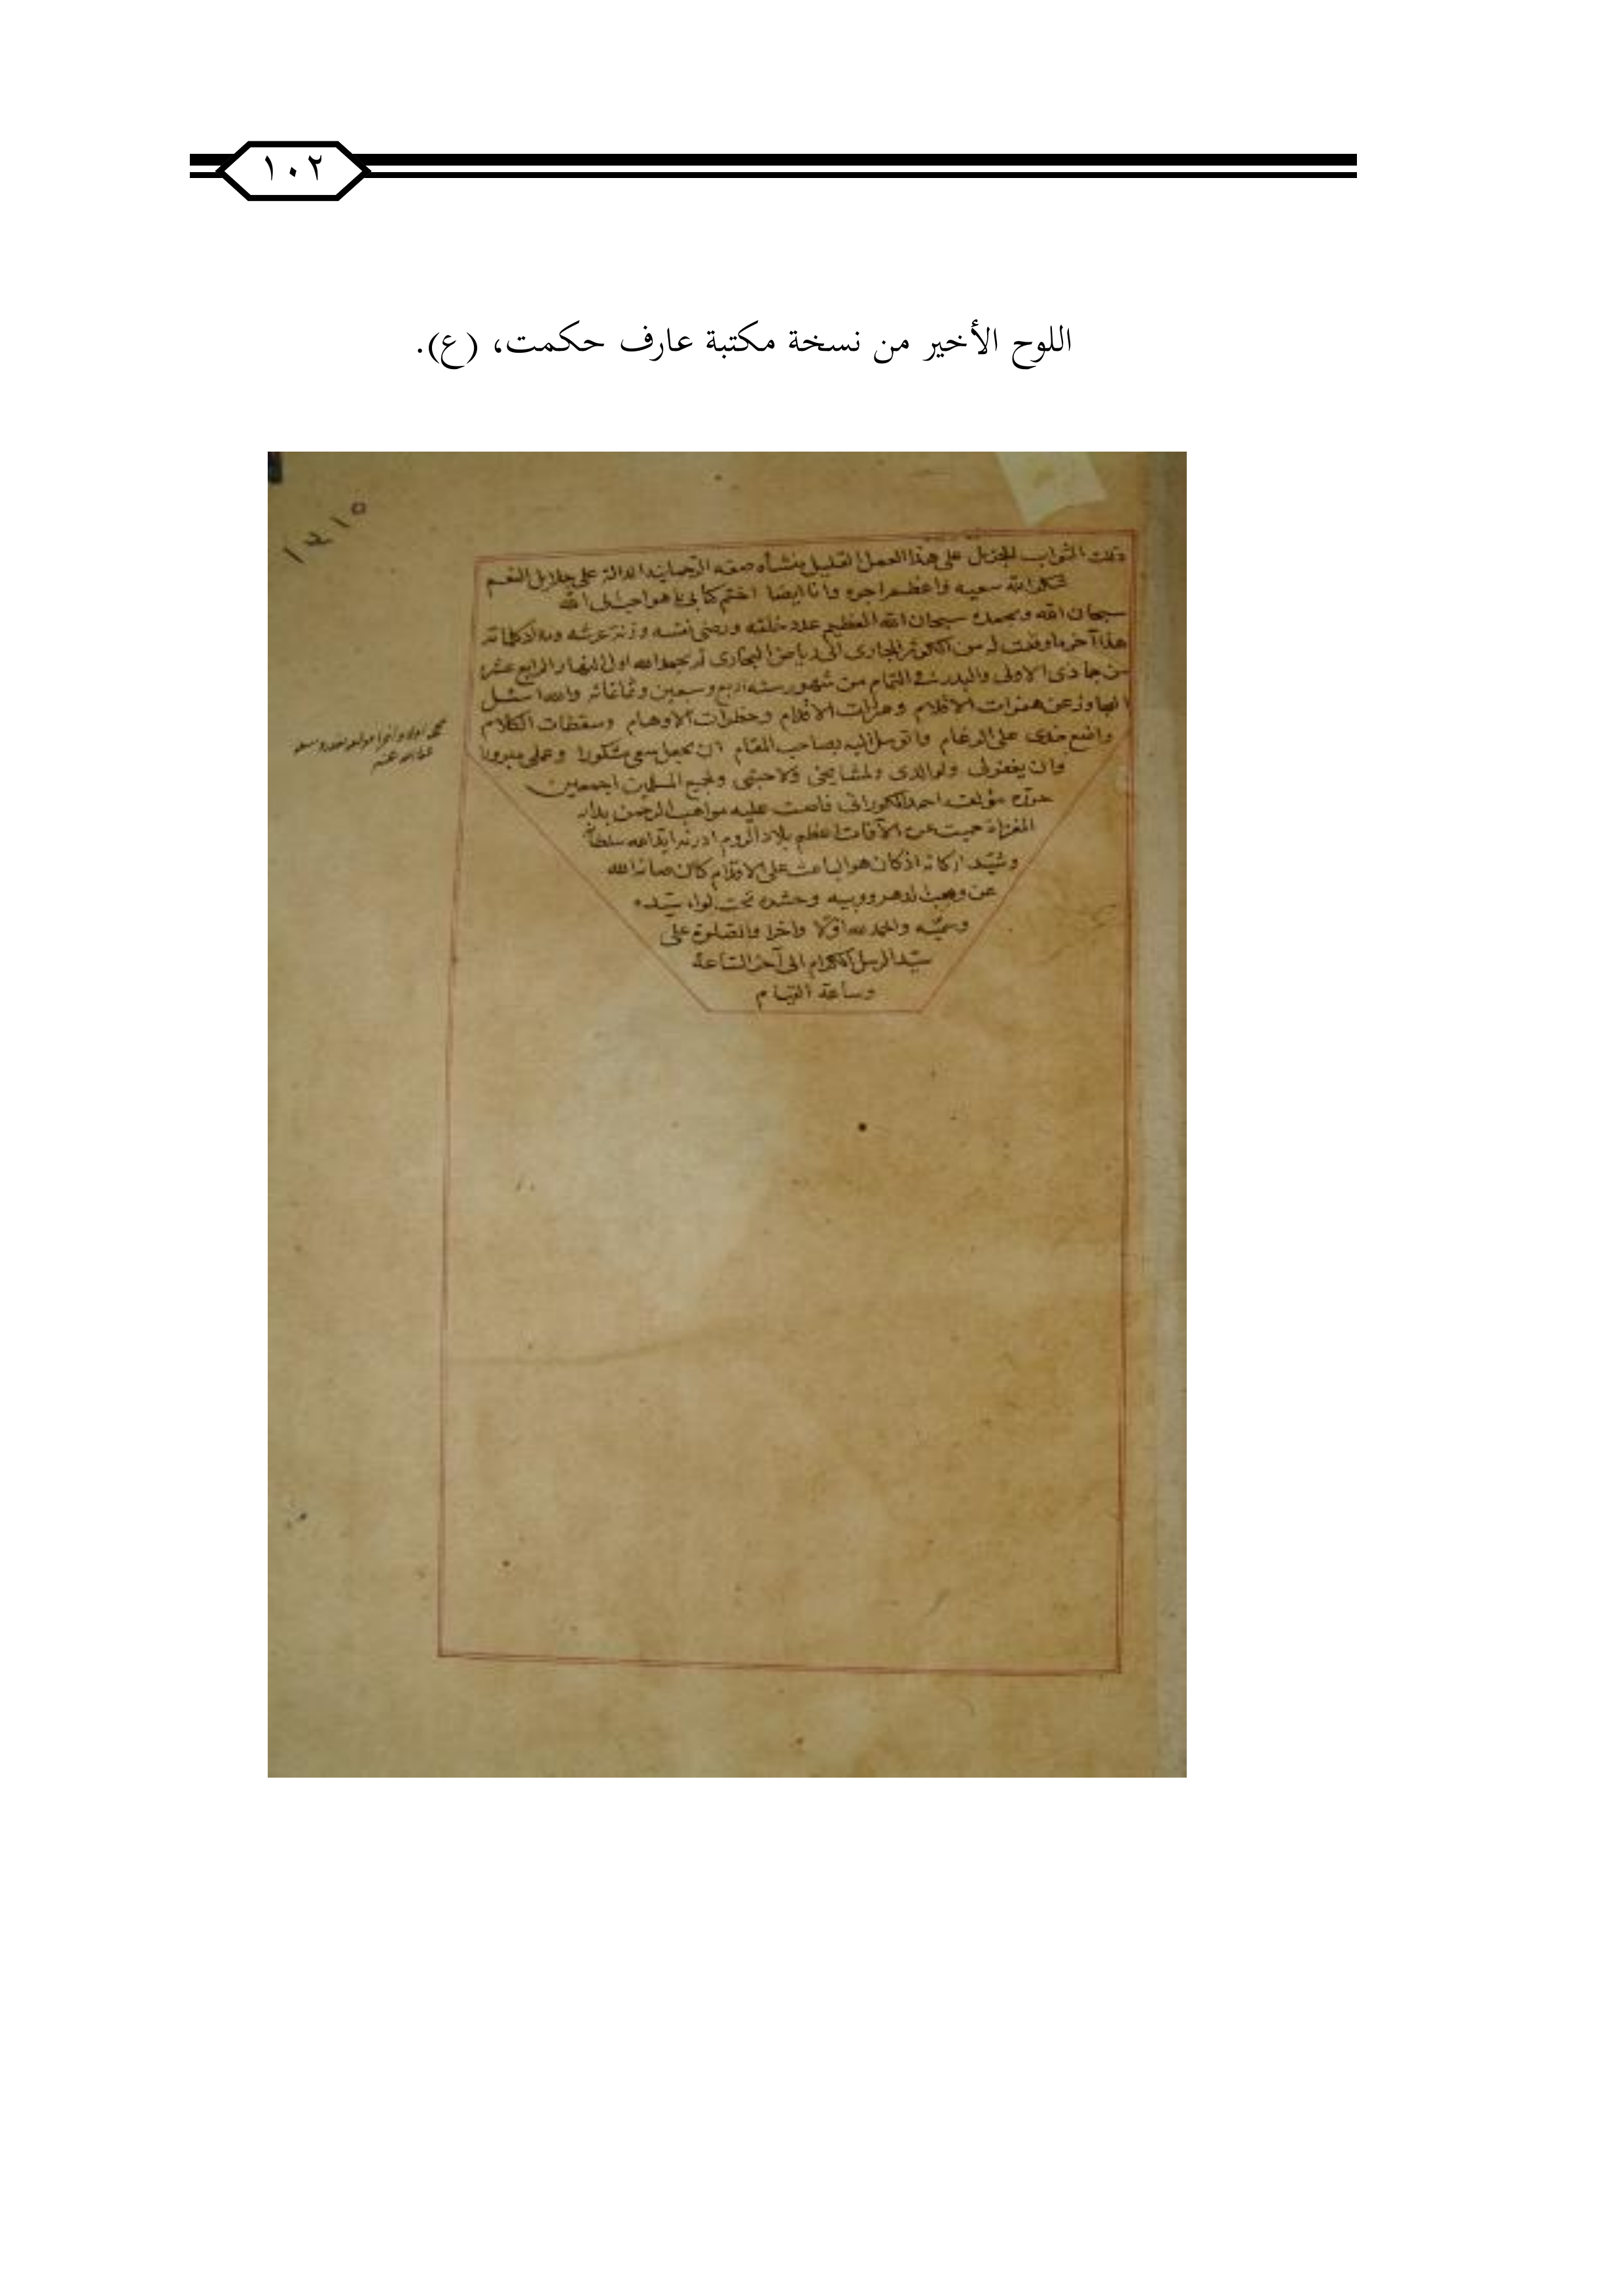 ١٠٢
اللوح الأخير من نسخة مكتبة عارف حكمت، (ع).
ذلك الثواب الجزيل على هذا العمل القليل منشأه صفة الرحمانية الدالة على جلايل النعم
شكر الله سعيه واعظم اجره وانا ايضا اختم كتابى بما هو احب الى الله
سبحان الله وبحمده سبحان الله العظيم عدد خلقه ورضى نفسه وزنة عرشه ومداد كلماته
هذا آخر ما وفقت له من الكوثر الجارى الى رياض البخارى تم بحمد الله اول النهار الرابع عشر
من جمادى الاولى والبدر فى التمام من شهور سنة اربع وسبعين وثمانمائة والله اسئل
التجاوز عن هفوات الاقلام وعثرات الاقدام وخطرات الاوهام وسقطات الكلام
واضع خدى على الرغام واتوسل اليه بصاحب المقام ان يجعل سعيى مشكورا وعملى مبرورا
وان يغفر لى ولوالدى ولمشايخى ولاحبتى ولجميع المسلمين اجمعين
حرره مؤلفه احمد الكورانى فاضت عليه مواهب الرحمن بدار
الغزاة حميت عن الآفات اعظم بلاد الروم ادرنه ايد الله سلطانه
وشيد اركانه اذ كان هو الباعث على الاقدام كان صانه الله
عن وصمت الدهر وريبه وحشره تحت لواء سيده
وسميه والحمد لله اولا واخرا والصلوة على
سيد الرسل الكرام الى آخر الساعة
وساعة القيام